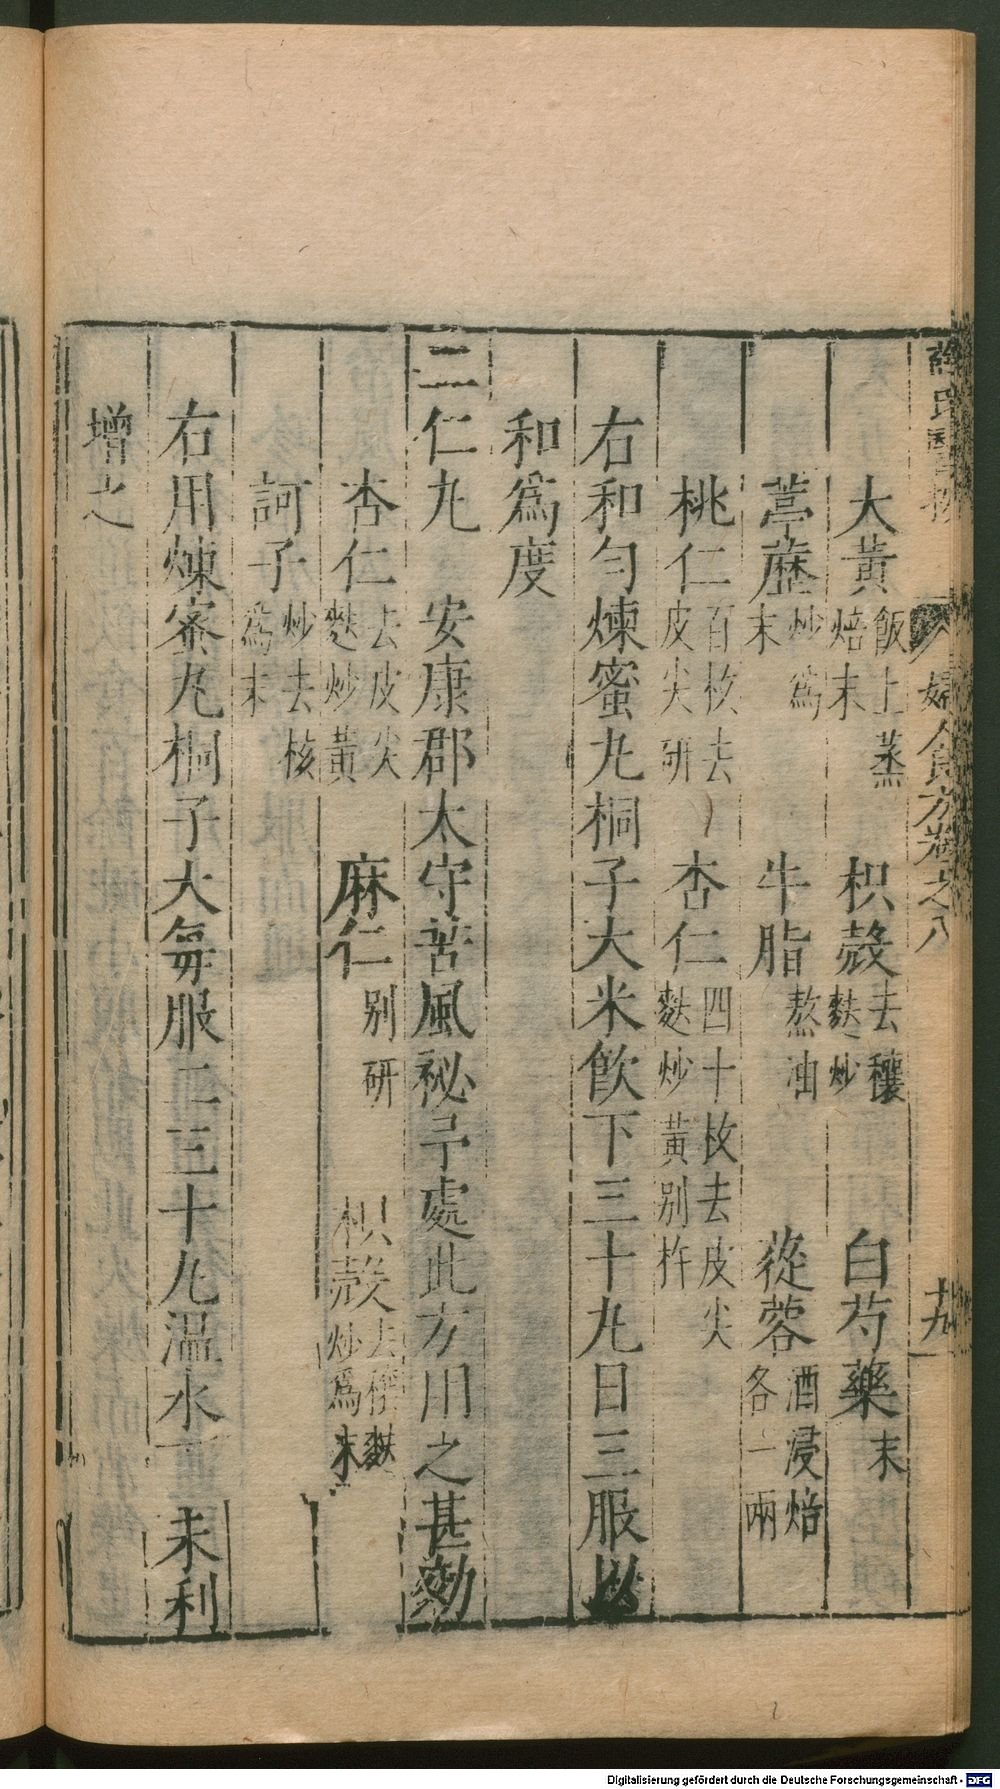 薛氏醫按 婦人良方卷之八 十九
大黃飯上蒸焙末 枳殼去穰麩炒 白芍藥末
葶藶炒爲末 牛脂熬油 蓯蓉酒浸焙各一兩
桃仁百枚去皮尖研 杏仁四十枚去皮尖麩炒黃別杵
右和勻煉蜜丸桐子大米飲下三十丸日三服以
和爲度
二仁丸 安康郡太守苦風祕予處此方用之甚効
杏仁去皮尖麩炒黃 麻仁別研 枳殼去穰麩炒爲末
訶子炒去核爲末
右用煉蜜丸桐子大每服二三十丸溫水下未利
增之
Digitalisierung gefördert durch die Deutsche Forschungsgemeinschaft - DFG